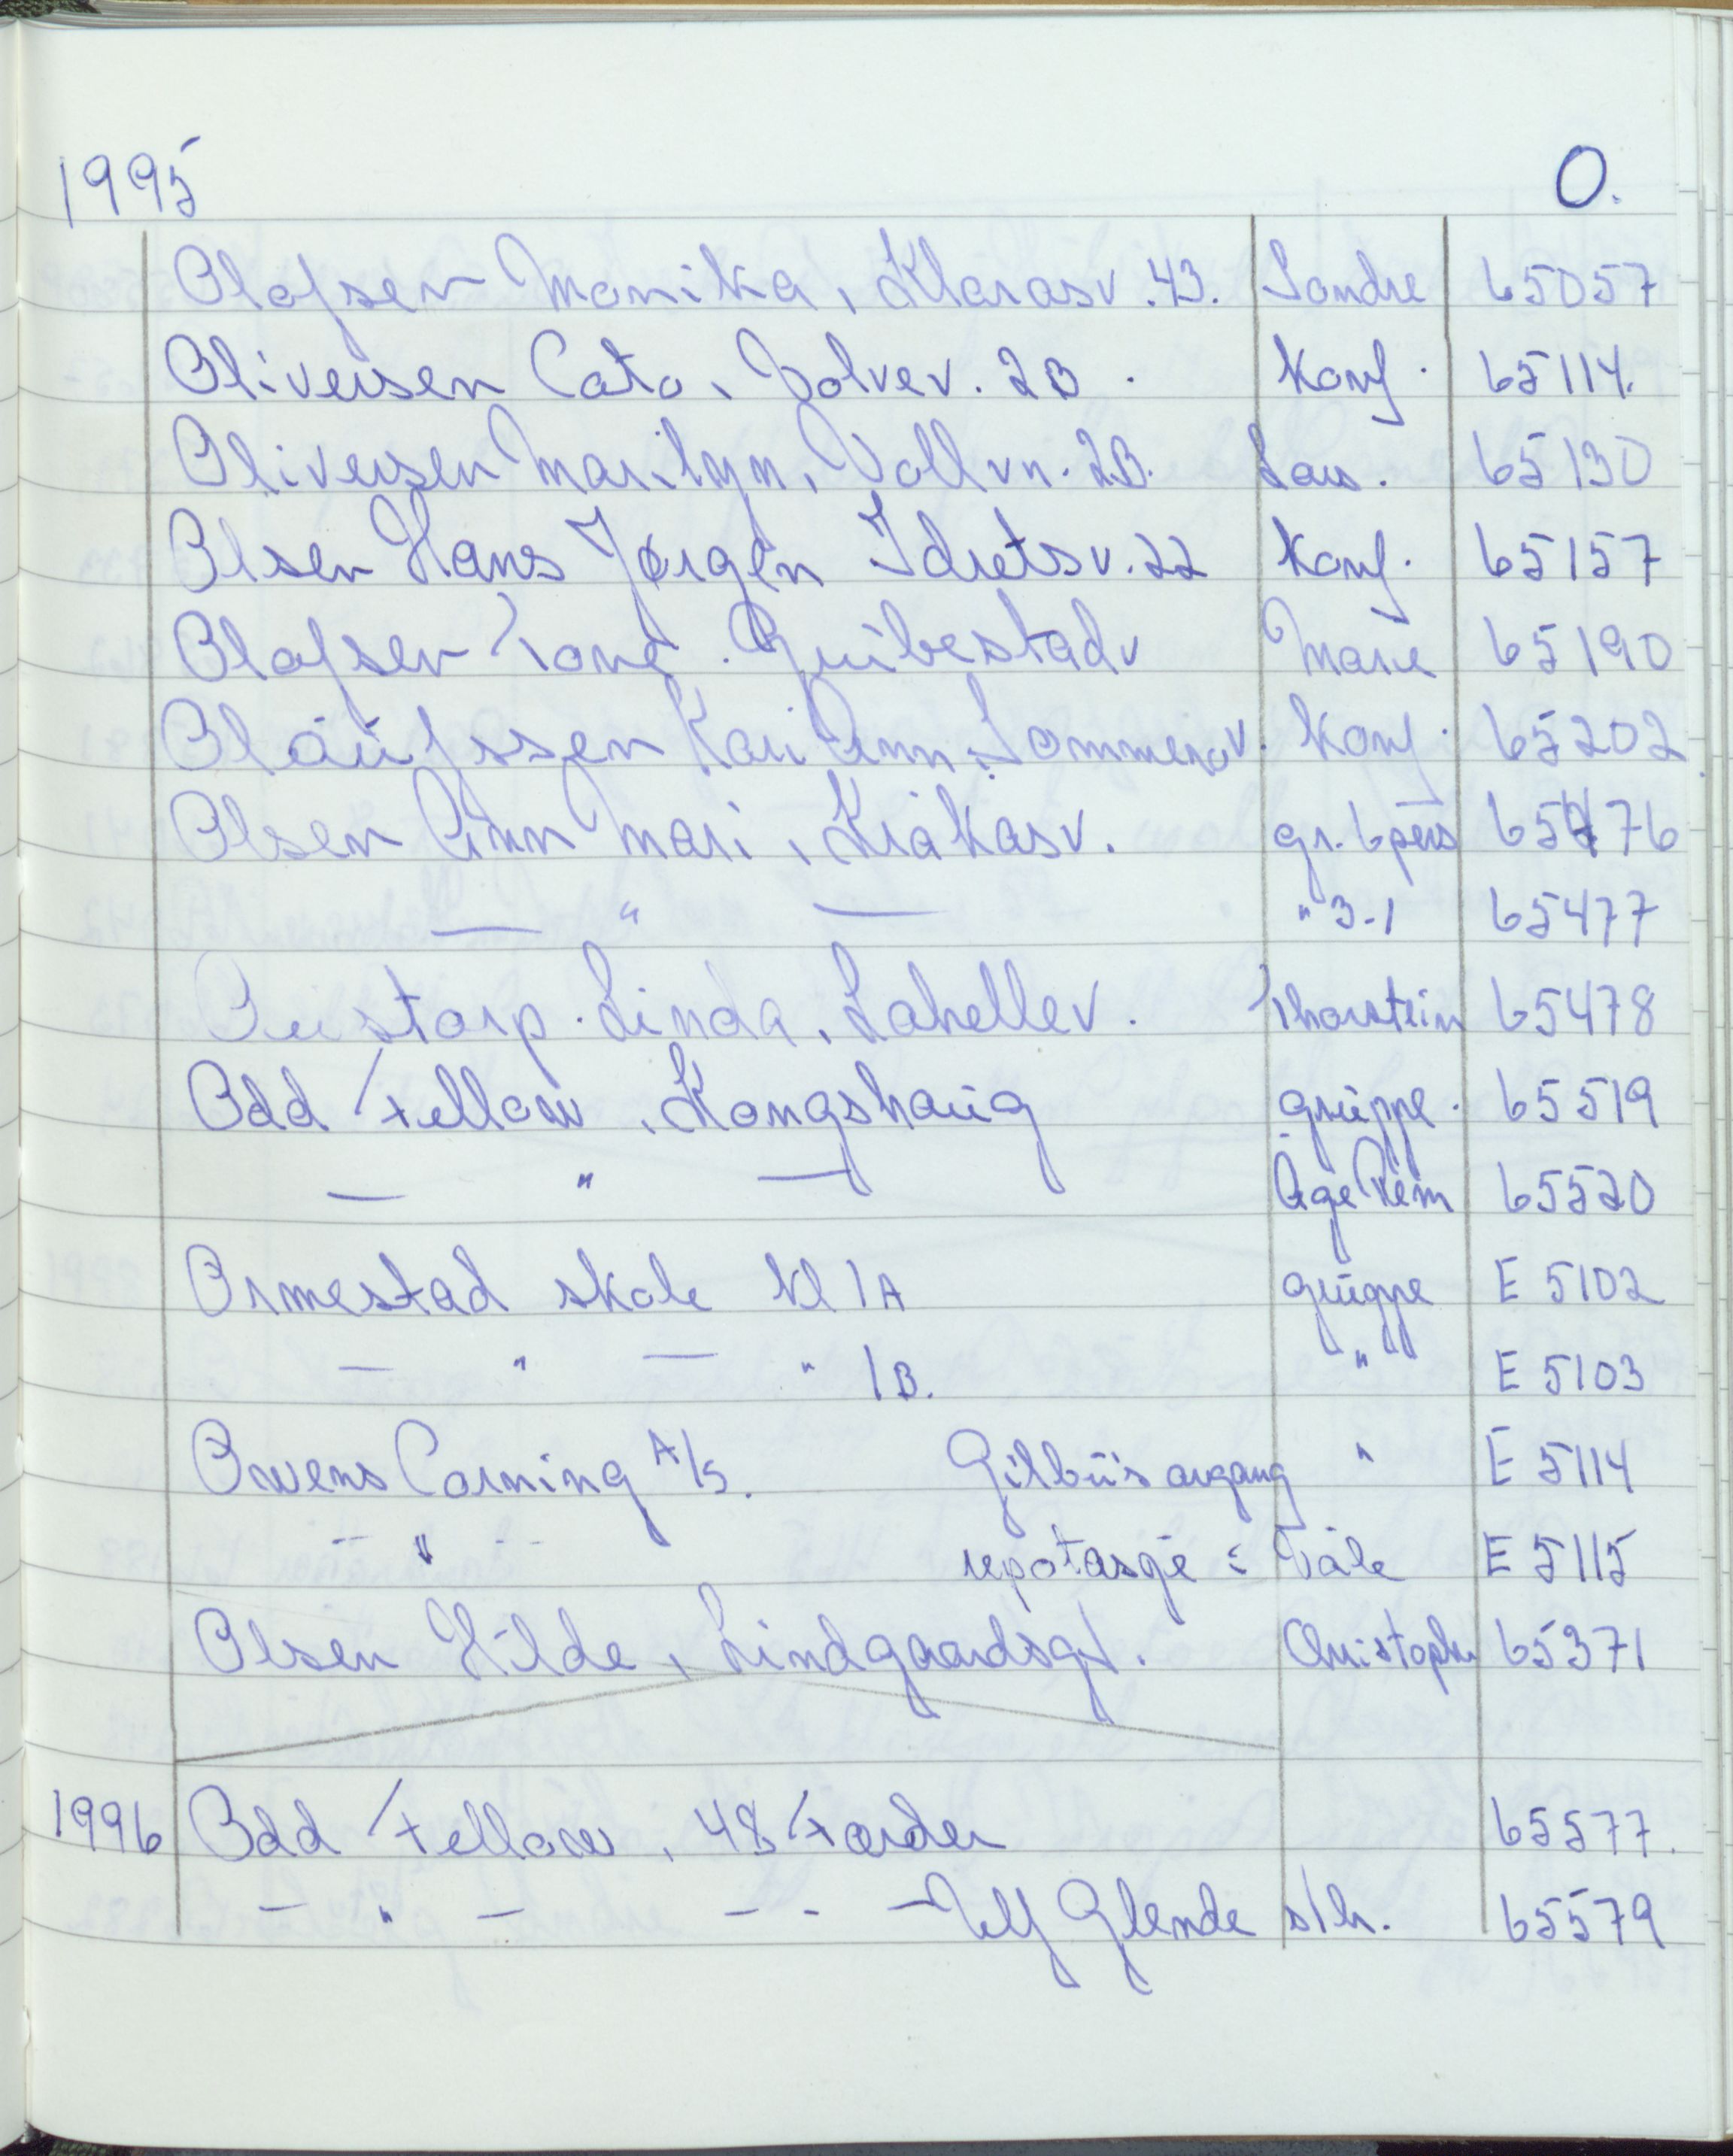 1995 O.
Olafsen Monika, Klarasv. 43. Sondre 65057
Oliversen Cato, Volvev. 2B. Konf. 65114.
Oliversen Marilyn, Vollvn. 2B. Lars. 65130
Olsen Hans Jørgen Idretsv. 22 Konf. 65157
Olafsen Tone. Guibestadv Marie 65190
Olaüfssen Kari Ann, Sommerov. Konf. 65202
Olsen Ann Mari, Kråkasv. gr. 6 pers 65476
— " — " 3-1 65477
Oustorp. Linda, Lahellev. Thorstein 65478
Odd Fellow, Kongshaüg grüppe. 65519
— " — Åge Rem 65520
Ormestad skole kl 1A grüppe E 5102
— " — " 1B. " E 5103
Owens Corning A/S. Gilbü's avgang " E 5114
- " - repotasje : Våle E 5115
Olsen Hilde, Lindgaardsgt. Christopher 65371
1996 Odd Fellow, 48 Færder 65577.
— " — - - — Ulf Glende s/h. 65579